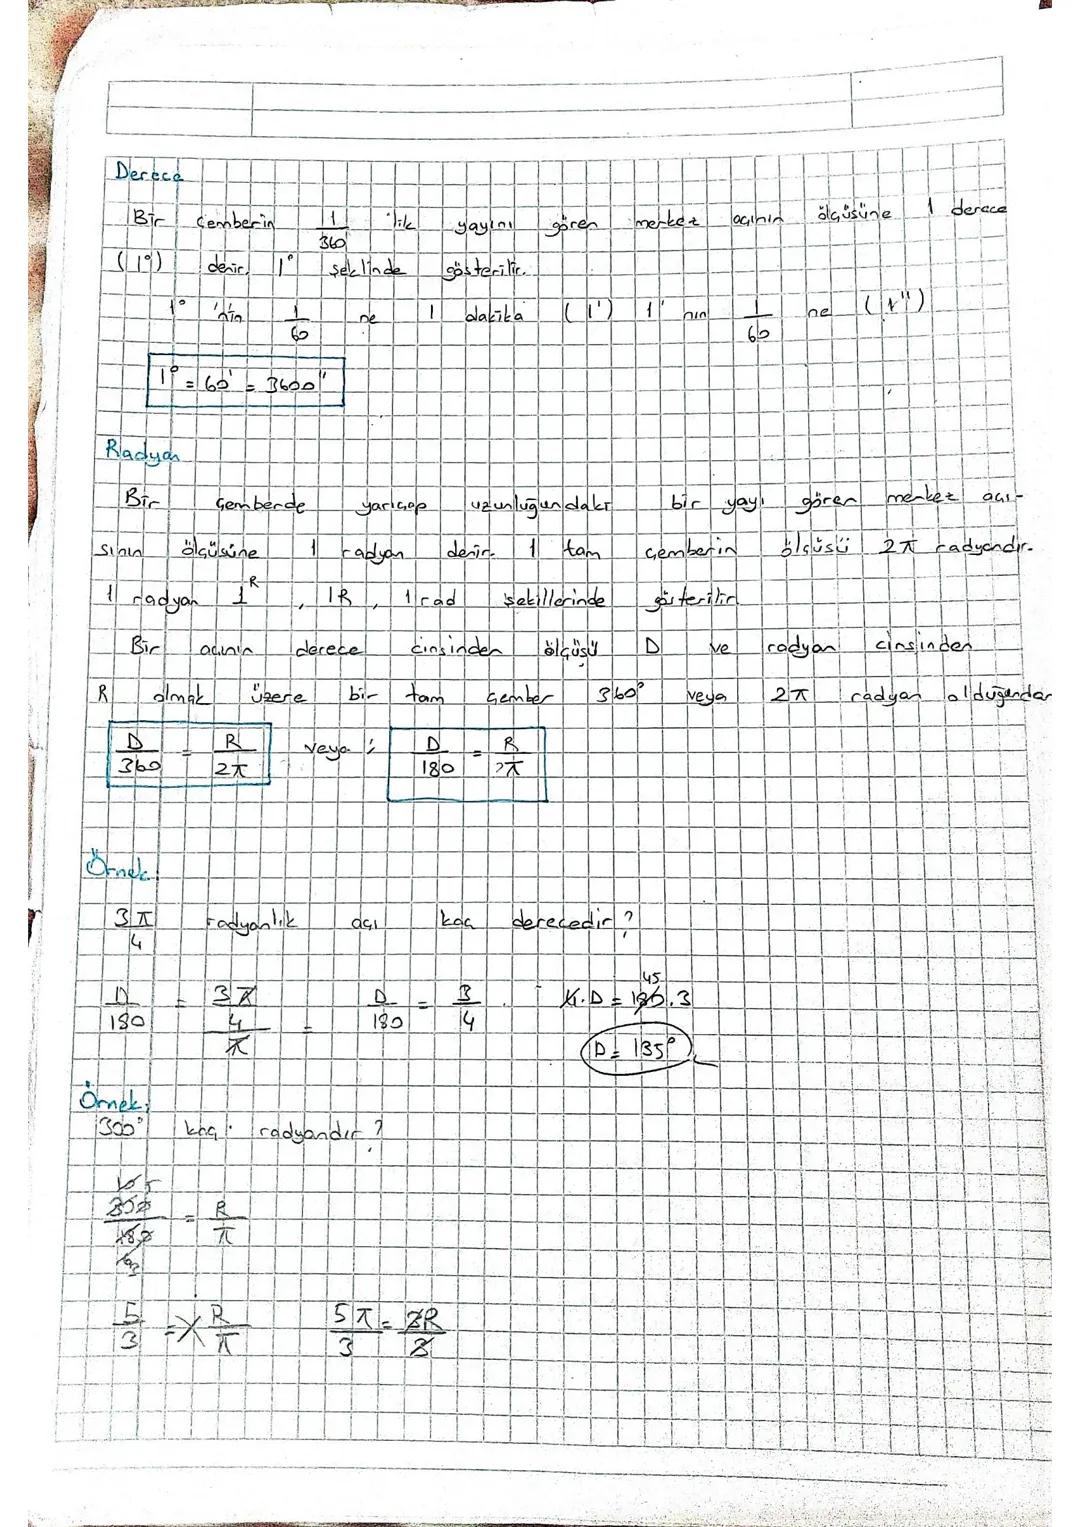 Derece
Bir çemberin 1/360 'lik yayını gören merkez açının ölçüsüne 1 derece
(1°) denir. 1° şeklinde gösterilir.
1° 'nin 1/60 ne 1 dakika (1') 1' nın 1/60 ne (1'')
1° = 60' = 3600''
Radyan
Bir çemberde yarıçap uzunluğundaki bir yayı gören merkez açı-
sının ölçüsüne 1 radyan denir. 1 tam çemberin ölçüsü 2π radyandır.
1 radyan 1^R, 1R, 1 rad şekillerinde gösterilir.
Bir açının derece cinsinden ölçüsü D ve radyan cinsinden
R olmak üzere bir tam çember 360° veya 2π radyan olduğundan
D/360 = R/2π veya ; D/180 = R/2π
Örnek:
3π/4 radyanlık açı kaç derecedir?
D/180 = 3π/4/π = D/180 = 3/4 4.D = 180.3 45
D = 135°
Örnek:
300° kaç radyandır?
300/180 = R/π
5/3 = R/π 5π/3 = 3R/3